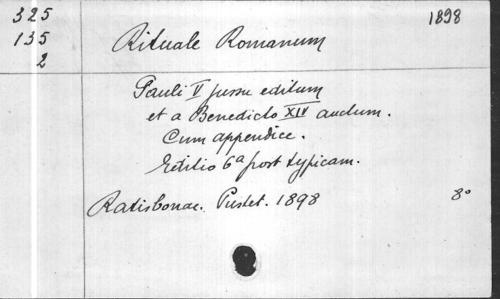 325
135
2
1898
Rituale Romanum
Pauli V jussu editum
et a Benedicto XIV auctum.
Cum appendice.
Editio 6a post typicam.
Ratisbonae. Pustet. 1898
8o